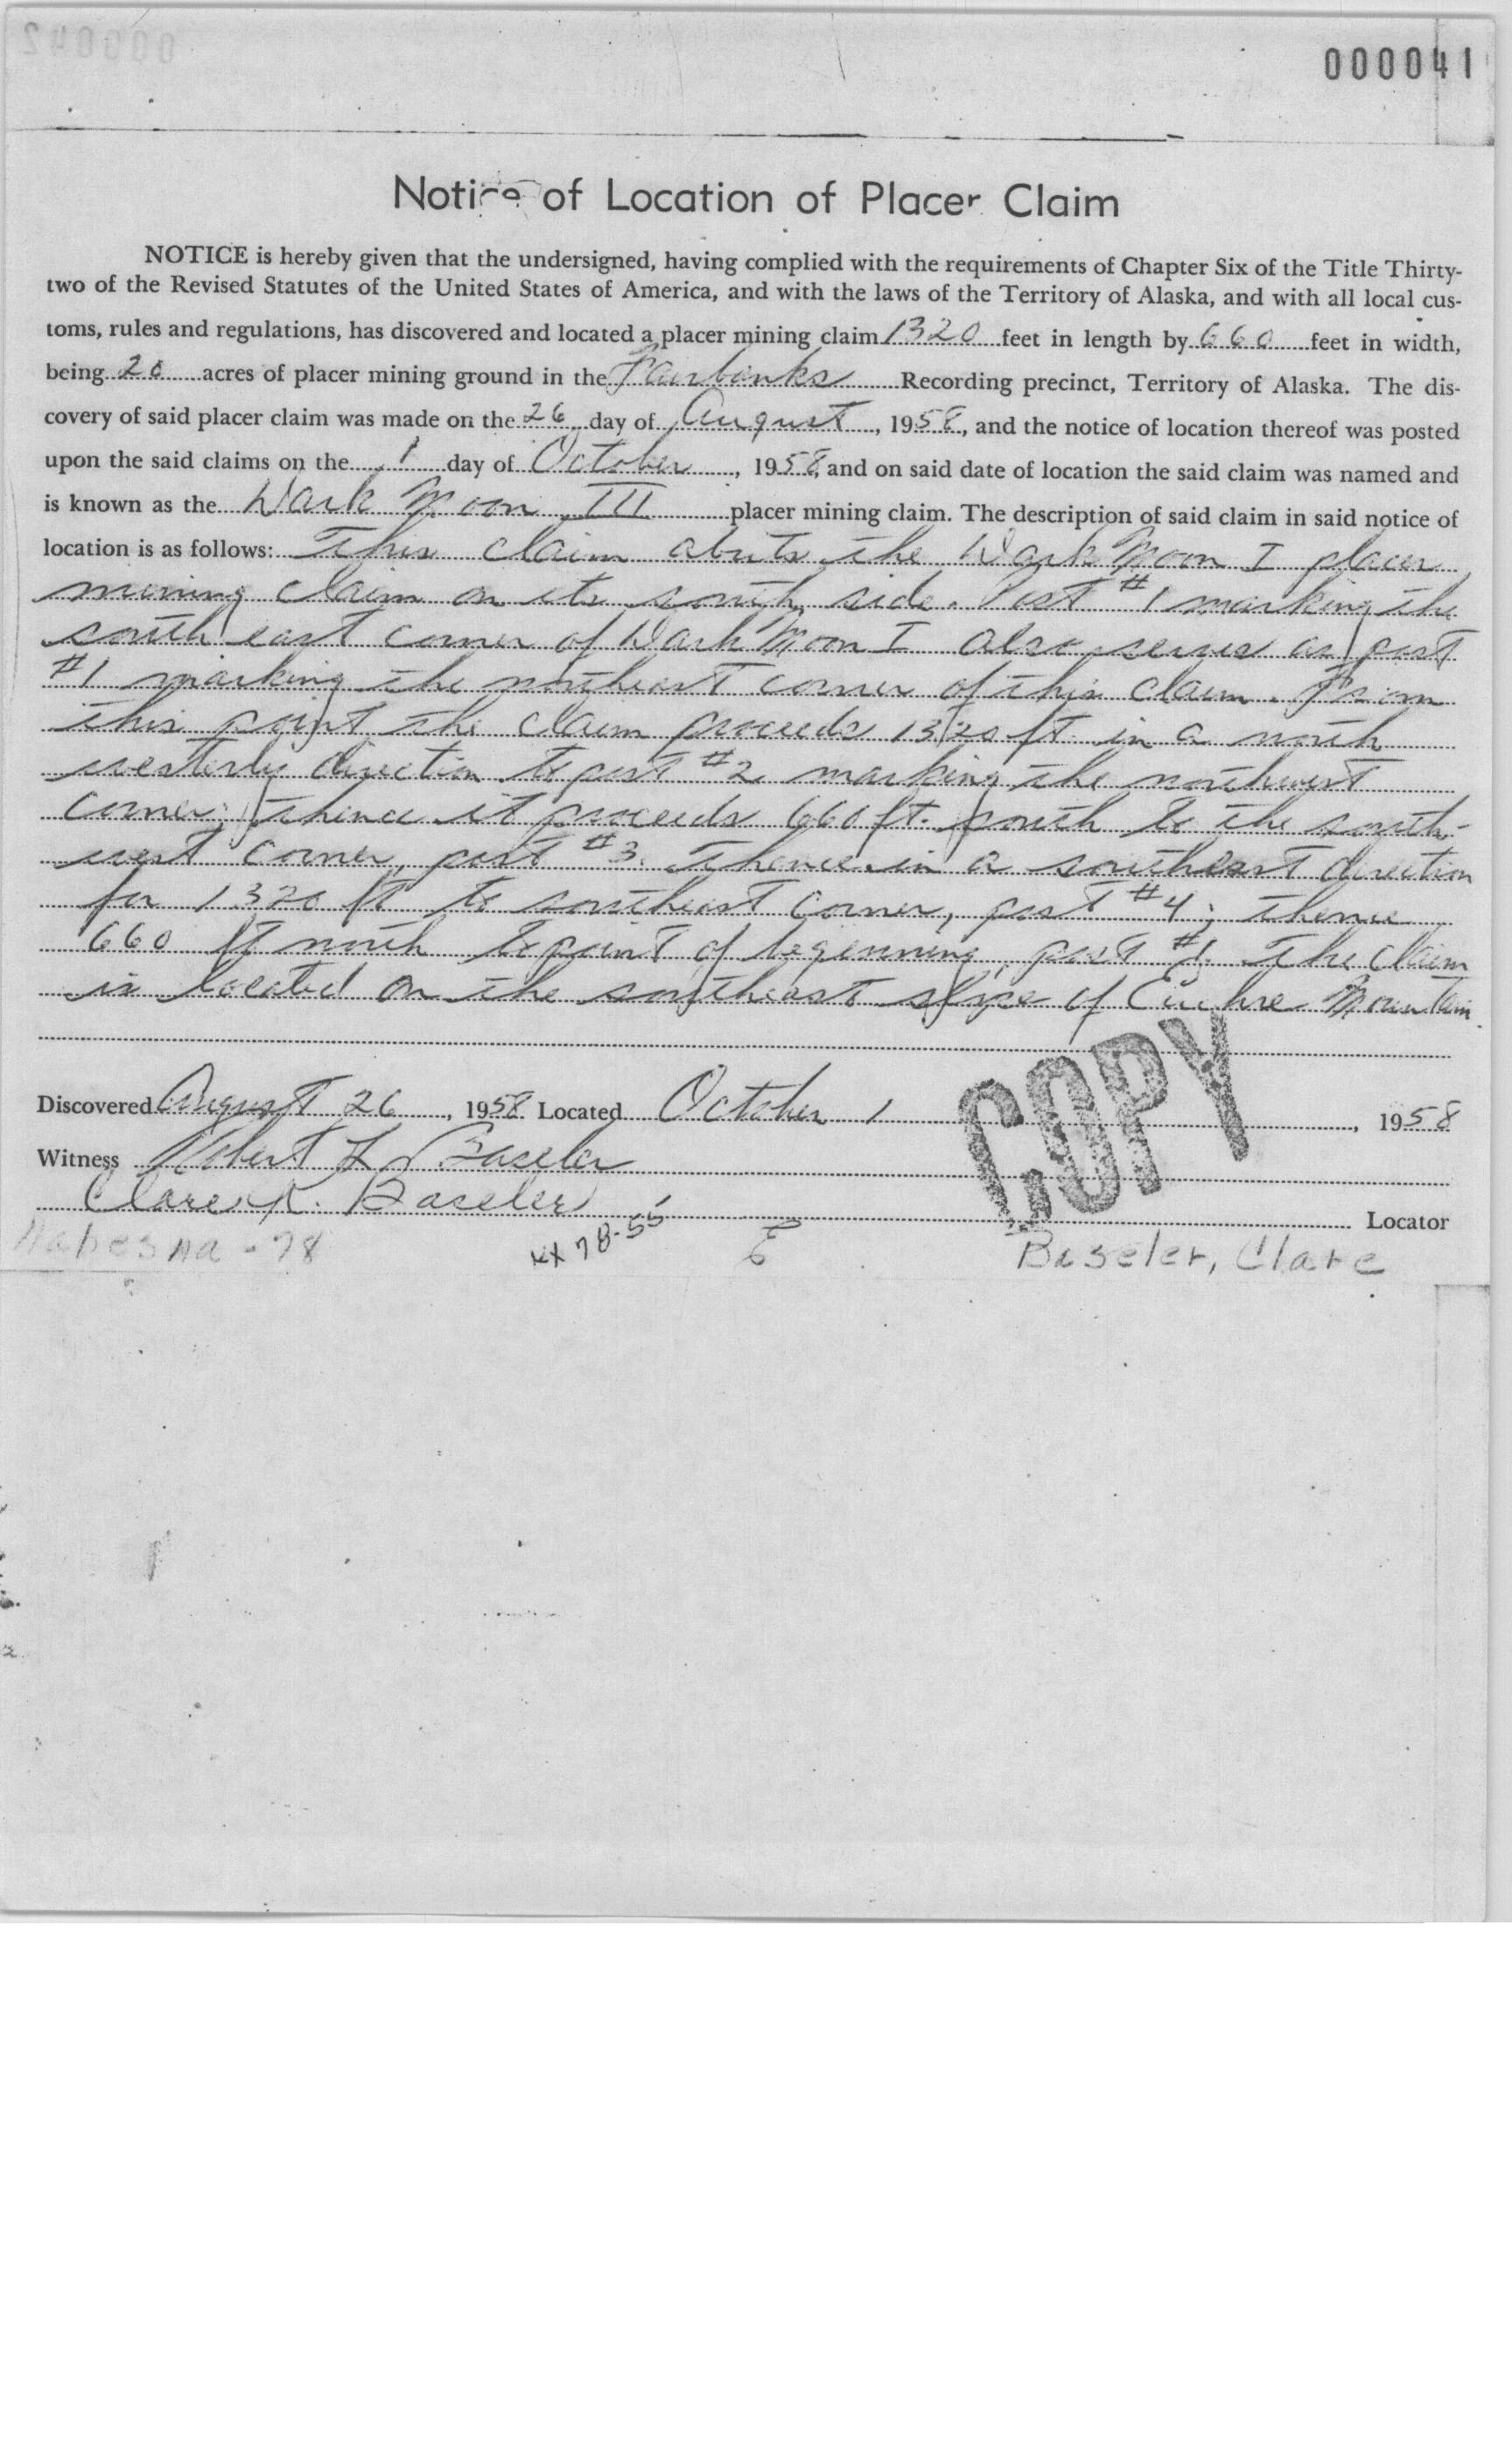 000042
000041
Notice of Location of Placer Claim
NOTICE is hereby given that the undersigned, having complied with the requirements of Chapter Six of the Title Thirty-
two of the Revised Statutes of the United States of America, and with the laws of the Territory of Alaska, and with all local cus-
toms, rules and regulations, has discovered and located a placer mining claim 1320 feet in length by 660 feet in width,
being 20 acres of placer mining ground in the Fairbanks Recording precinct, Territory of Alaska. The dis-
covery of said placer claim was made on the 26 day of August, 1958, and the notice of location thereof was posted
upon the said claims on the 1 day of October, 1958, and on said date of location the said claim was named and
is known as the Dark Moon III placer mining claim. The description of said claim in said notice of
location is as follows: This claim abuts the Dark Moon I placer
mining claim on its south side. Post #1 marking the
south east corner of Dark Moon I also serves as post
#1 marking the northeast corner of this claim. From
this point the claim proceeds 1320 ft. in a north
westerly direction to post #2 marking the northwest
corner; thence it proceeds 660 ft. south to the south-
west corner, post #3. Thence in a southeast direction
for 1320 ft to southeast corner, post #4; thence
660 ft north to point of beginning, post #1. The claim
is located on the southeast slope of Euchre Mountain.
COPY
Discovered August 26, 1958 Located October 1, 1958
Witness Robert L Baseler
Clare K. Baseler
Locator
Nabesna - 78
KX 78-55
Baseler, Clare